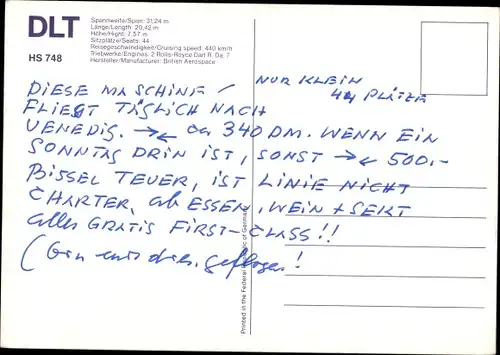 DLT
HS 748
Spannweite/Span: 31,24 m
Länge/Length: 20,42 m
Höhe/Hight: 7,57 m
Sitzplätze/Seats: 44
Reisegeschwindigkeit/Cruising speed: 440 km/h
Triebwerke/Engines: 2 Rolls-Royce Dart R. Da. 7
Hersteller/Manufacturer: British Aerospace
DIESE MASCHINE / NUR KLEIN
44 PLÄTZE
FLIEGT TÄGLICH NACH
VENEDIG. →← ca 340 DM. WENN EIN
SONNTAG DRIN IST, SONST →← 500,-
BISSEL TEUER, IST LINIE NICHT
CHARTER, ab ESSEN, WEIN + SEKT
alles GRATIS FIRST-CLASS!!
(bin geflogen!
Printed in the Federal Republic of Germany